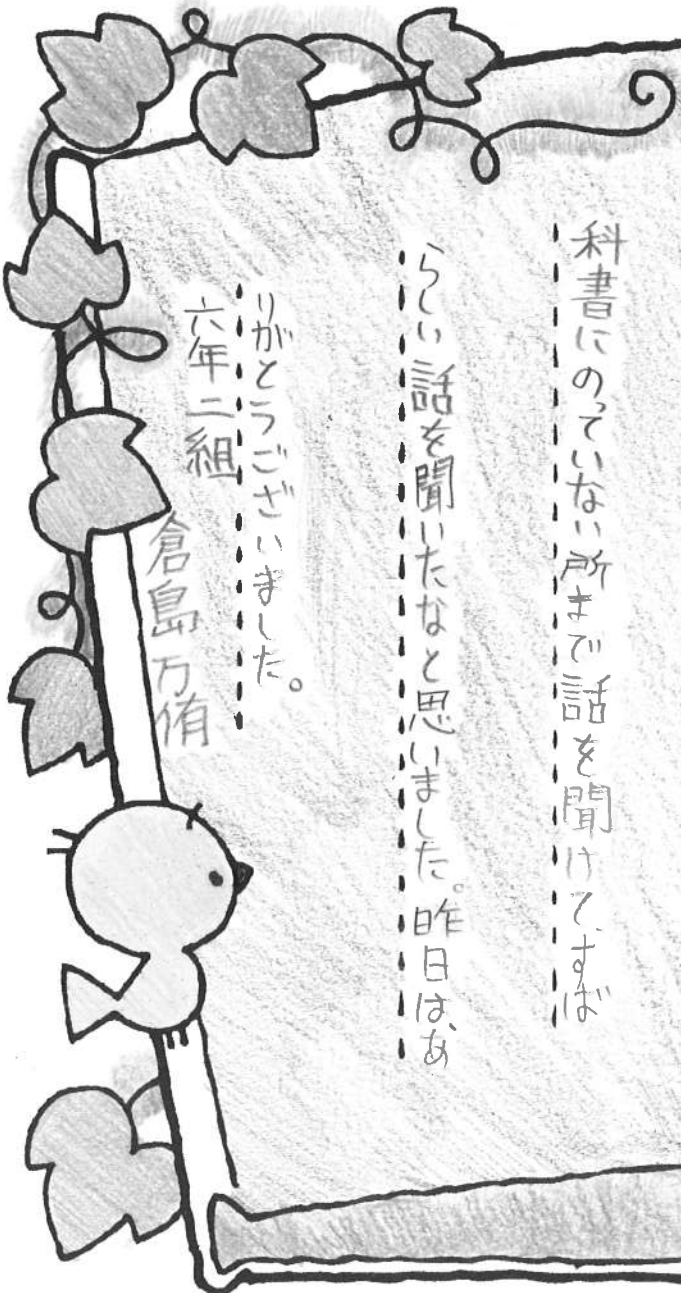 科書にのっていない所まで話を聞けて、すば
らしい話を聞いたなと思いました。昨日は、あ
りがとうございました。
六年二組 倉島万侑